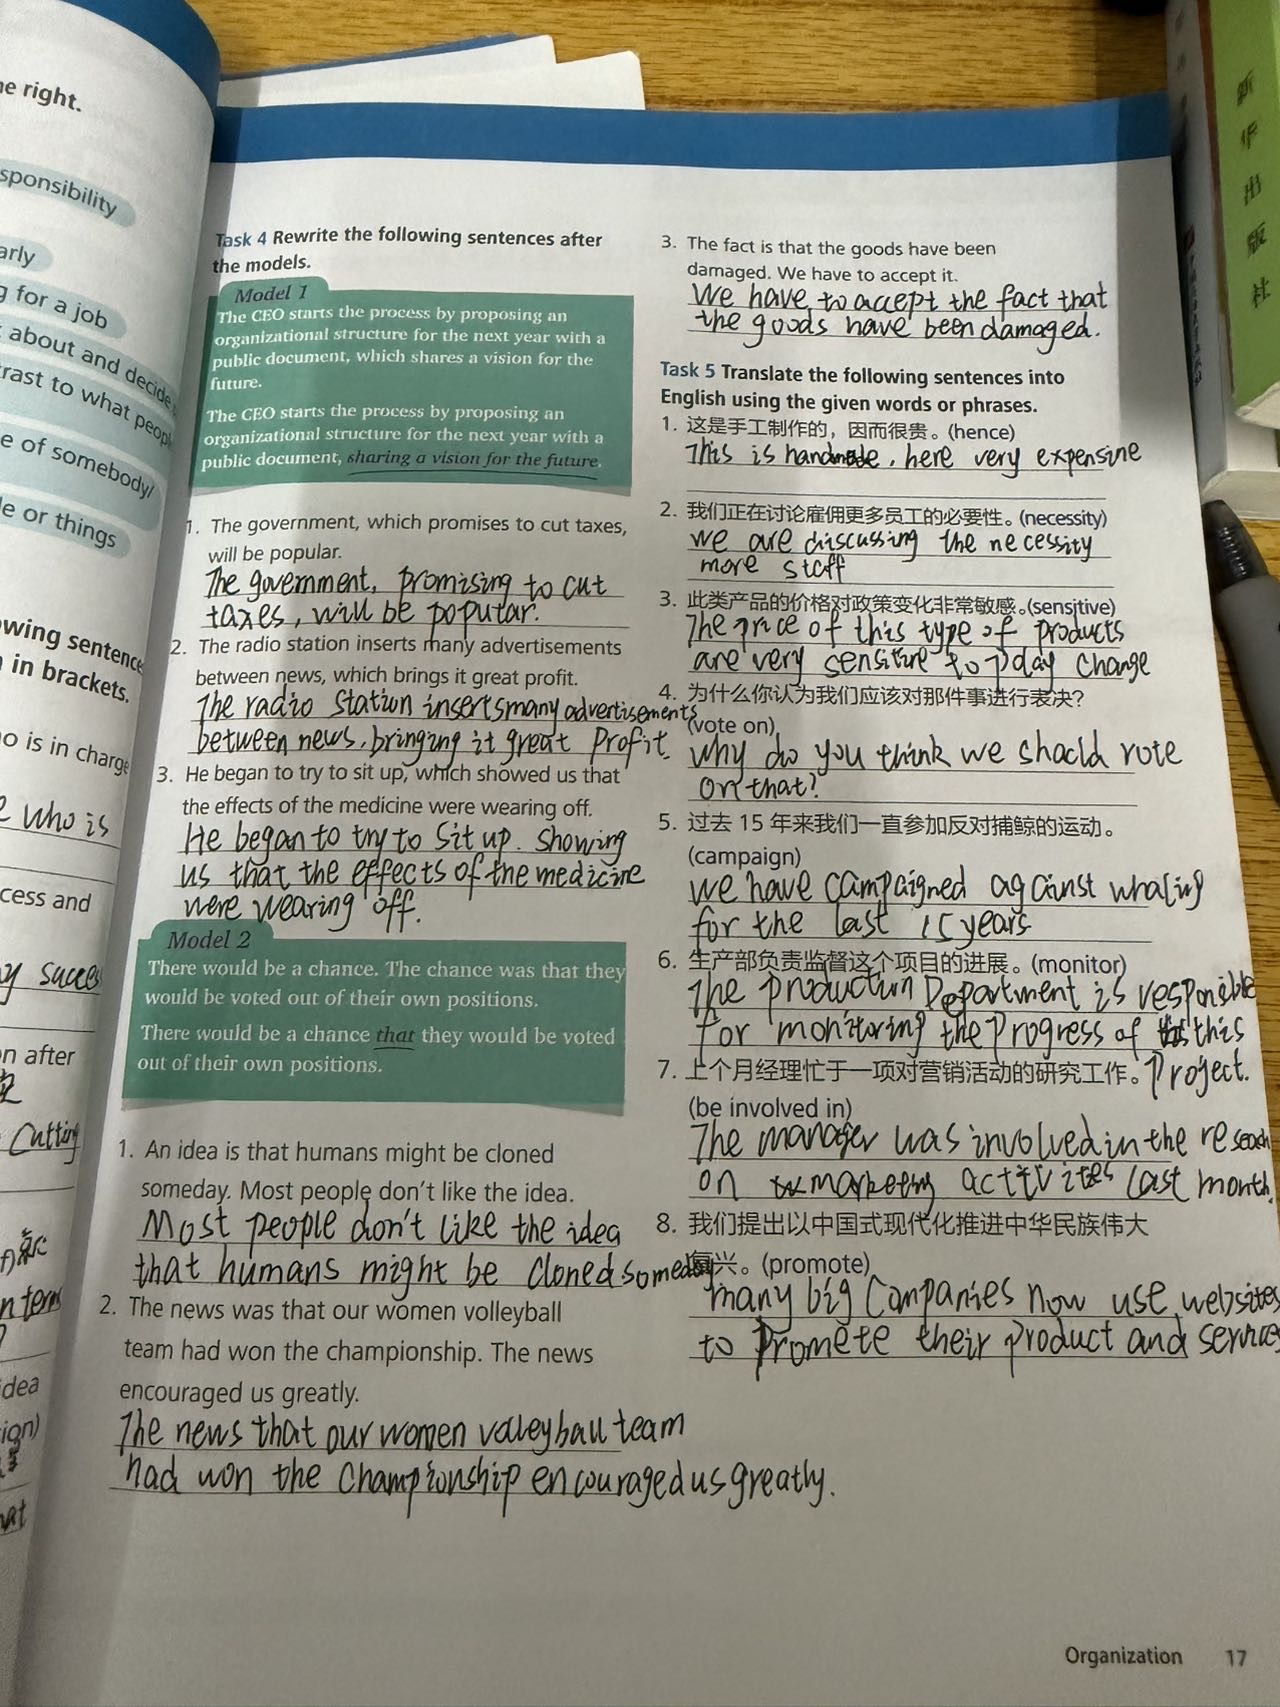 ne right.
sponsibility
arly
g for a job
about and decide
trast to what people
e of somebody/
le or things
owing sentence
in brackets.
o is in charge
e who is
cess and
y success
on after
cutting
n terms
idea
Task 4 Rewrite the following sentences after
the models.
Model 1
The CEO starts the process by proposing an
organizational structure for the next year with a
public document, which shares a vision for the
future.
The CEO starts the process by proposing an
organizational structure for the next year with a
public document, sharing a vision for the future.
1. The government, which promises to cut taxes,
will be popular.
The government, promising to cut
taxes, will be popular.
2. The radio station inserts many advertisements
between news, which brings it great profit.
The radio station inserts many advertisements
between news, bringing it great profit.
3. He began to try to sit up, which showed us that
the effects of the medicine were wearing off.
He began to try to sit up. showing
us that the effects of the medicine
were wearing off.
Model 2
There would be a chance. The chance was that they
would be voted out of their own positions.
There would be a chance that they would be voted
out of their own positions.
1. An idea is that humans might be cloned
someday. Most people don't like the idea.
Most people don't like the idea
that humans might be cloned someday
2. The news was that our women volleyball
team had won the championship. The news
encouraged us greatly.
The news that our women volleyball team
had won the championship encouraged us greatly.
3. The fact is that the goods have been
damaged. We have to accept it.
We have to accept the fact that
the goods have been damaged.
Task 5 Translate the following sentences into
English using the given words or phrases.
1. 这是手工制作的，因而很贵。(hence)
This is handmade, here very expensive
2. 我们正在讨论雇佣更多员工的必要性。(necessity)
we are discussing the necessity
more staff
3. 此类产品的价格对政策变化非常敏感。(sensitive)
The price of this type of products
are very sensitive to change
4. 为什么你认为我们应该对那件事进行表决？
(vote on)
why do you think we should vote
on that?
5. 过去 15 年来我们一直参加反对捕鲸的运动。
(campaign)
we have campaigned against whaling
for the last 15 years
6. 生产部负责监督这个项目的进展。(monitor)
The production Department is responsible
for monitoring the progress of this
project.
7. 上个月经理忙于一项对营销活动的研究工作。
(be involved in)
The manager was involved in the research
on marketing activities last month.
8. 我们提出以中国式现代化推进中华民族伟大
复兴。(promote)
many big companies now use websites
to promete their product and services
Organization 17
新
华
出
版
社